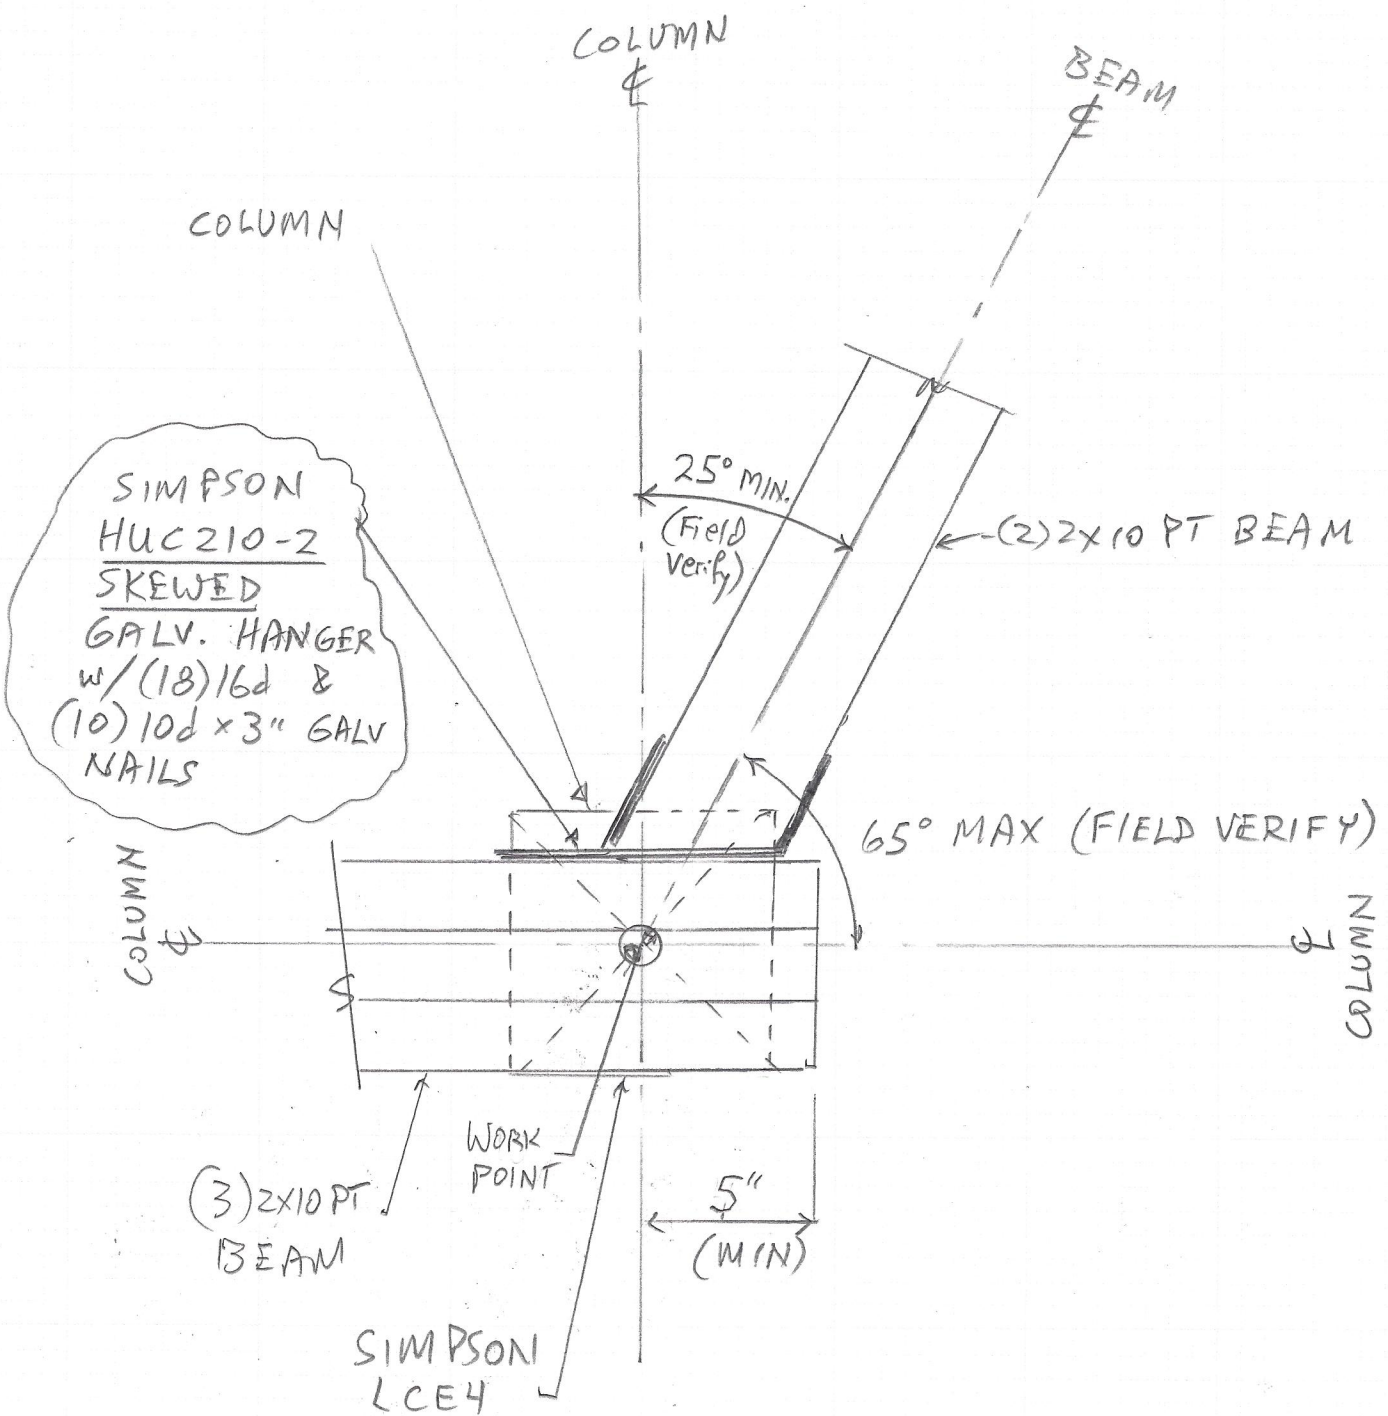 COLUMN
℄
BEAM
℄
COLUMN
SIMPSON
HUC210-2
SKEWED
GALV. HANGER
w/(18)16d &
(10)10d x 3" GALV
NAILS
25° MIN.
(Field
Verify)
(2)2x10 PT BEAM
65° MAX (FIELD VERIFY)
COLUMN
℄
℄
COLUMN
WORK
POINT
(3)2x10 PT
BEAM
5"
(MIN)
SIMPSON
LCE4